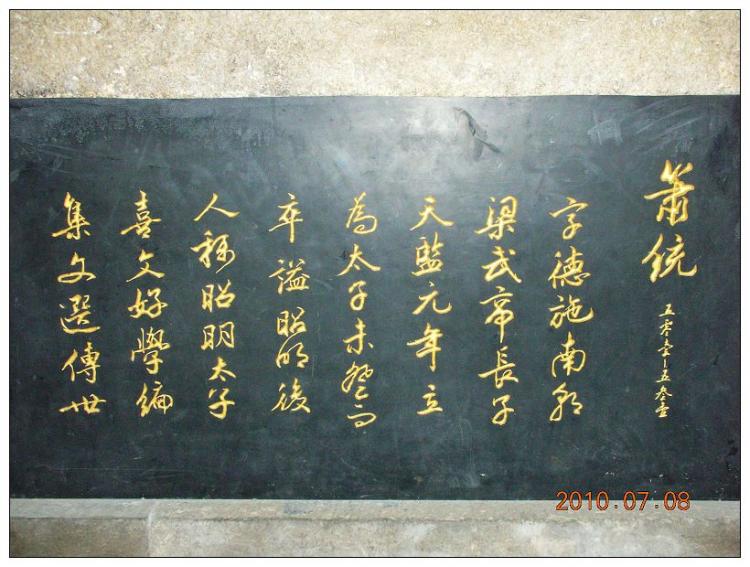 蕭統 五零壹-五叁壹
字德施南朝
梁武帝長子
天監元年立
為太子未登而
卒謚昭明後
人稱昭明太子
喜文好學編
集文選傳世
2010.07.08